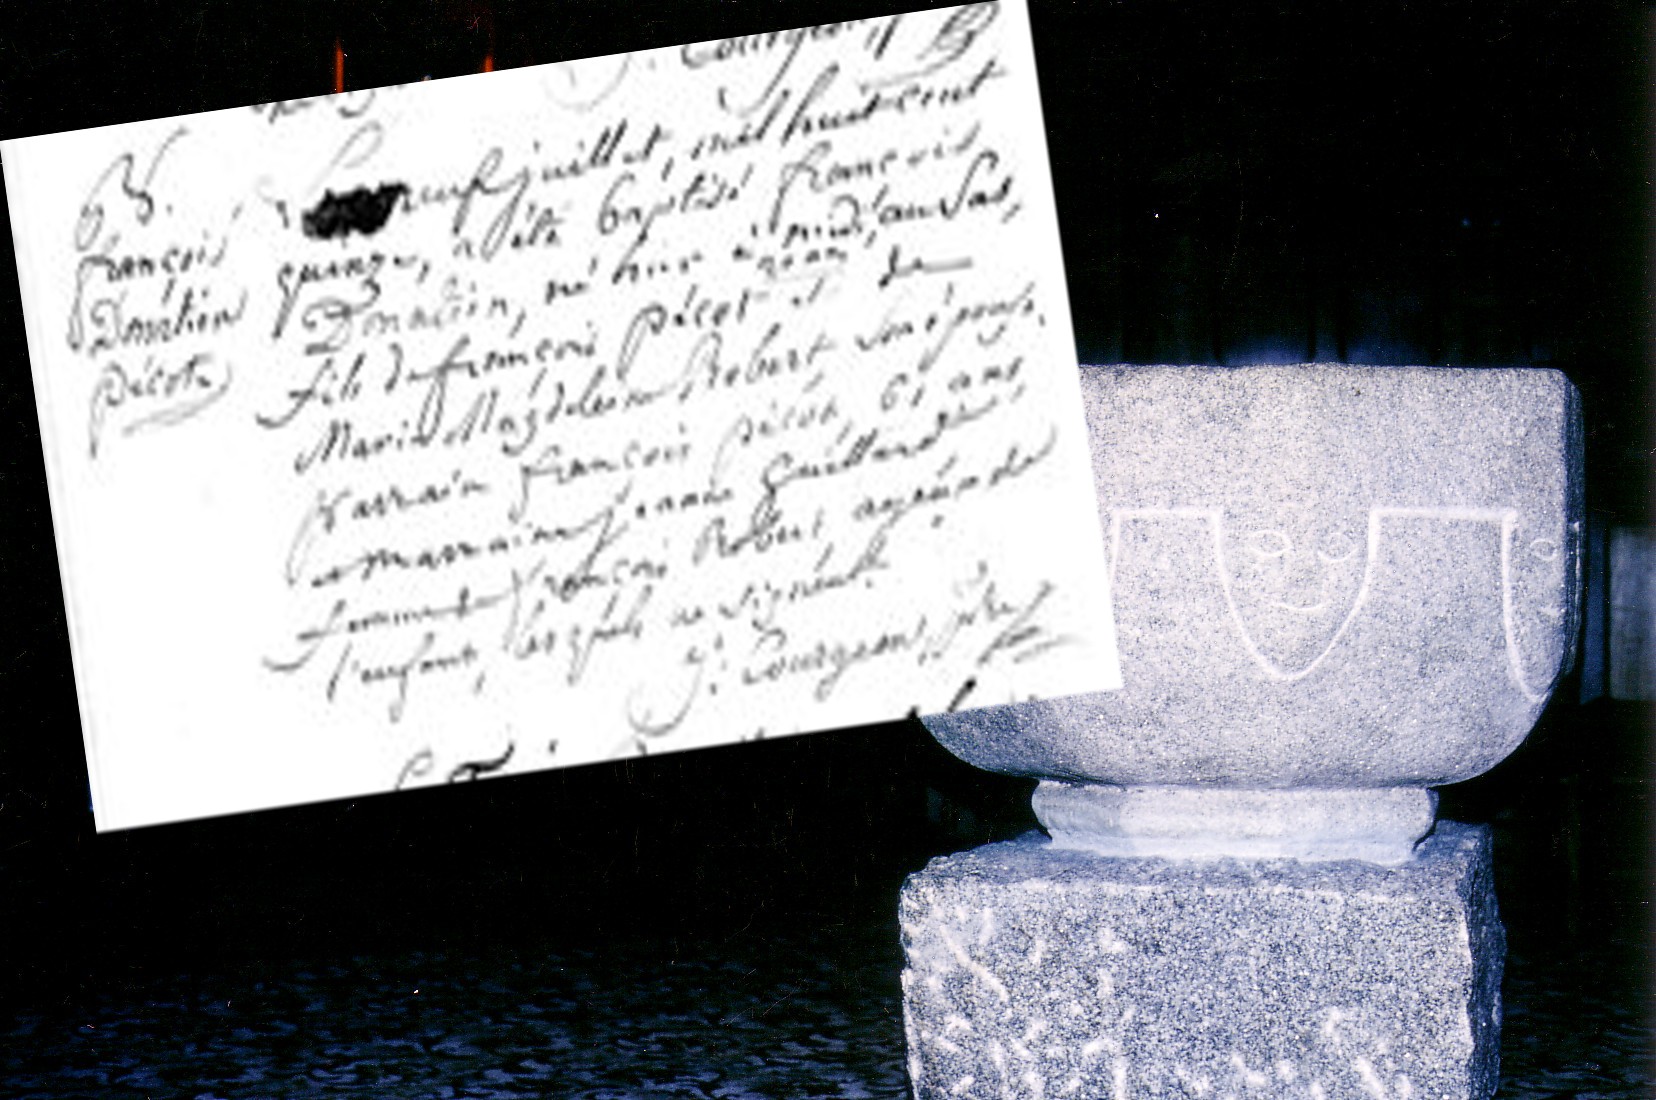 B.
françois
Donatien
pécot
Le neuf juillet, mil huit cent
quinze, a été baptisé françois
Donatien, né hier à midi, au Pas,
fils de françois pécot et de
Marie Magdeleine Robert son épouse.
parrain françois pécot, 61 ans
marraine jeanne Guillard
femme de françois Robert, ayeule de
l'enfant, lesquels ne signent.
j. Courgeon, ptre